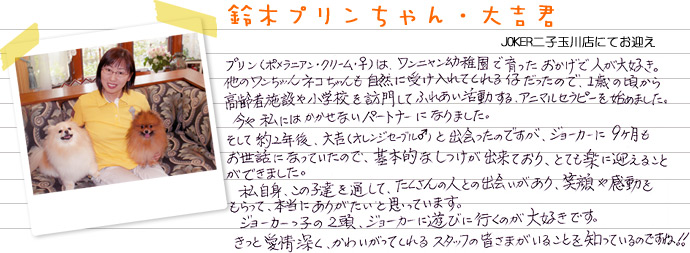 鈴木プリンちゃん・大吉君
JOKER二子玉川店にてお迎え
プリン(ポメラニアン・クリーム・♀)は、ワンニャン幼稚園で育ったおかげで人が大好き。
他のワンちゃんネコちゃんも自然に受け入れてくれる仔だったので、1歳の頃から
高齢者施設や小学校を訪問してふれあい活動する、アニマルセラピーを始めました。
今や私にはかかせないパートナーになりました。
そして約2年後、大吉(オレンジセーブル♂)と出会ったのですが、ジョーカーに9ヶ月も
お世話になっていたので、基本的なしつけが出来ており、とても楽に迎えること
ができました。
私自身、この子達を通して、たくさんの人との出会いがあり、笑顔や感動を
もらって、本当にありがたいと思っています。
ジョーカーっ子の2頭、ジョーカーに遊びに行くのが大好きです。
きっと愛情深く、かわいがってくれるスタッフの皆さまがいることを知っているのですね!!